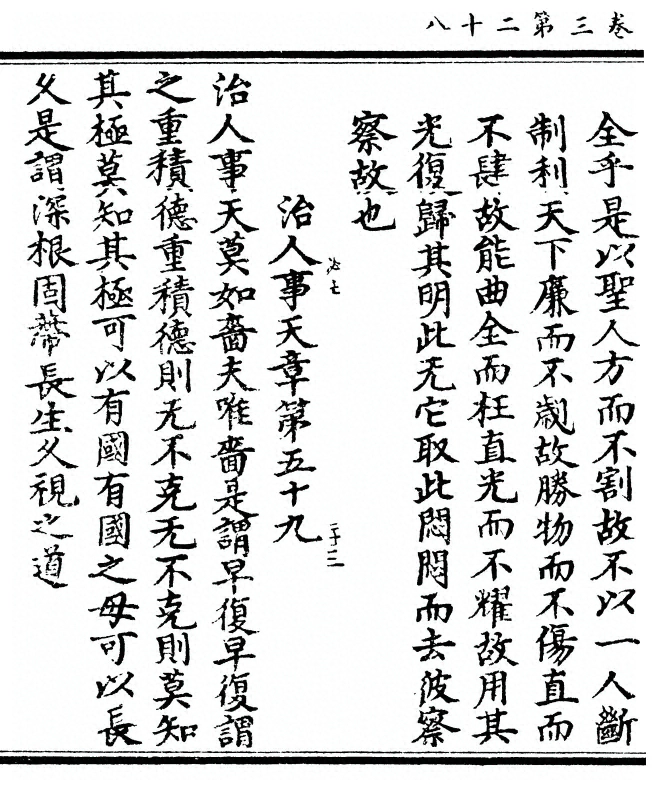 卷三第二十八
全乎是以聖人方而不割故不以一人斷
制利天下廉而不劌故勝物而不傷直而
不肆故能曲全而枉直光而不耀故用其
光復歸其明此无它取此悶悶而去彼察
察故也
治人事天章第五十九
治人事天莫如嗇夫唯嗇是謂早復早復謂
之重積德重積德則无不克无不克則莫知
其極莫知其極可以有國有國之母可以長
久是謂深根固蔕長生久視之道